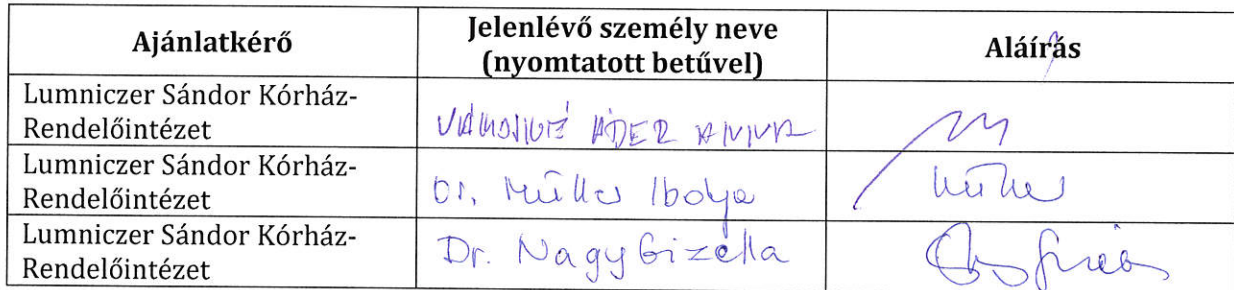 Ajánlatkérő
Jelenlévő személy neve
(nyomtatott betűvel)
Aláírás
Lumniczer Sándor Kórház-
Rendelőintézet
VÁMOSINÉ ÁDER ANNA
Lumniczer Sándor Kórház-
Rendelőintézet
Dr. Müller Ibolya
Müller
Lumniczer Sándor Kórház-
Rendelőintézet
Dr. Nagy Gizella